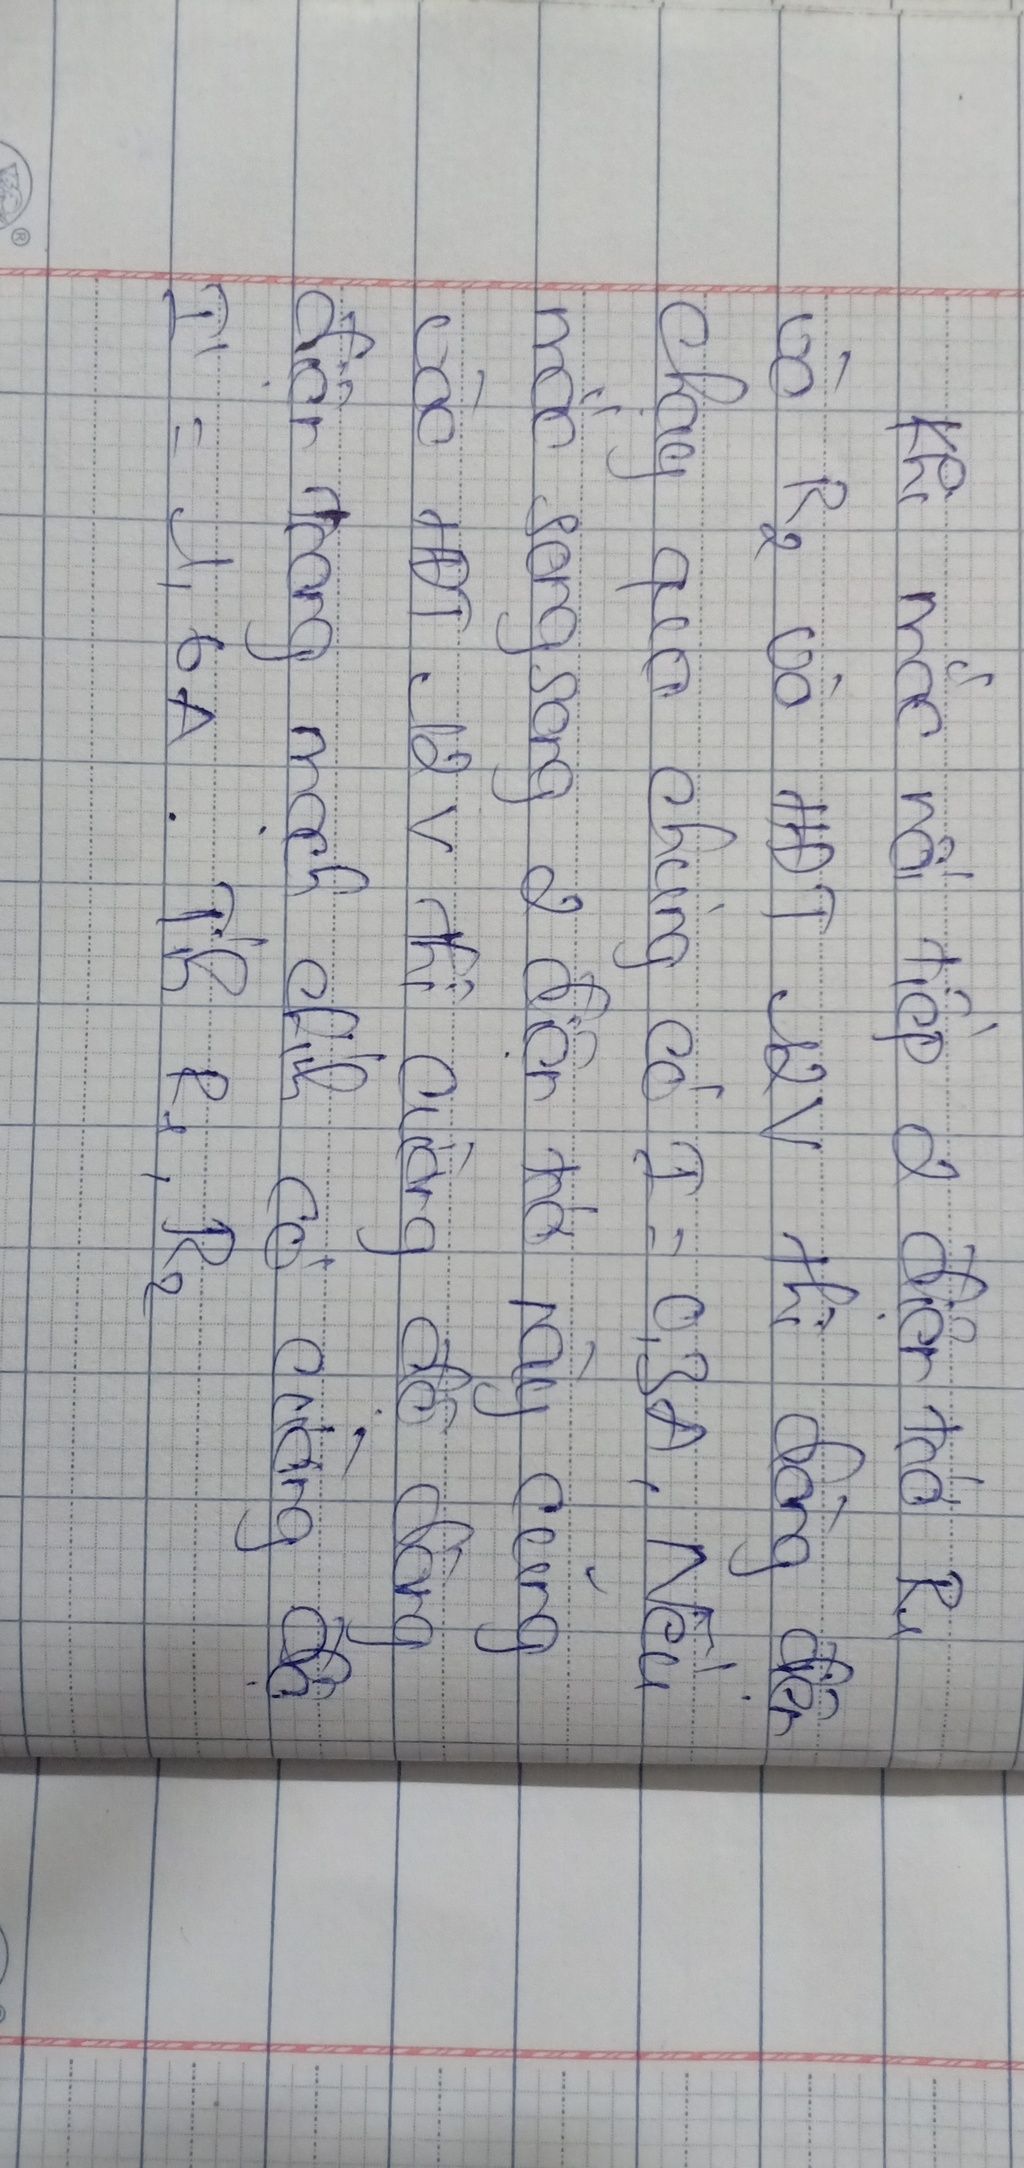 Khi mắc nối tiếp 2 điện trở R1
và R2 vào HĐT 12V thì dòng điện
chạy qua chúng có I = 0,3A, Nếu
mắc song song 2 điện trở này cũng
vào HĐT 12V thì cường độ dòng
điện trong mạch chính có cường độ
I' = 1,6A. Tính R1, R2
®